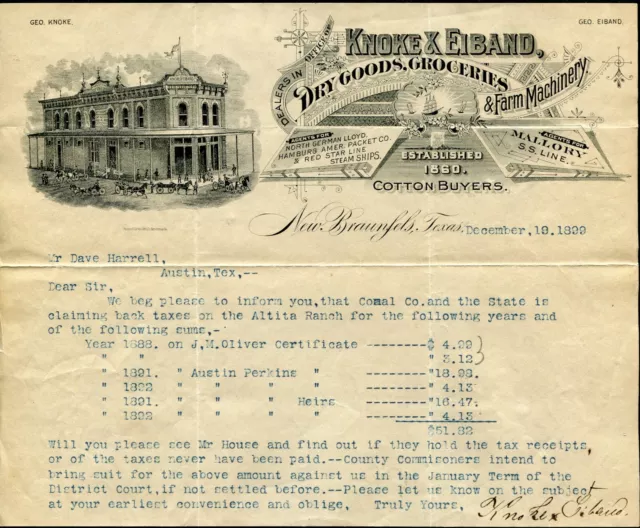 GEO. KNOKE.
GEO. EIBAND.
OFFICE OF
KNOKE & EIBAND,
DEALERS IN
DRY GOODS, GROCERIES
& FARM MACHINERY.
AGENTS FOR
NORTH GERMAN LLOYD.
HAMBURG AMER. PACKET CO.
& RED STAR LINE
STEAM SHIPS.
ESTABLISHED
1880.
AGENTS FOR
MALLORY
S.S. LINE.
COTTON BUYERS.
New Braunfels, Texas, December, 19. 1899
Mr Dave Harrell,
Austin, Tex,--
Dear Sir,
We beg please to inform you, that Comal Co. and the State is
claiming back taxes on the Altita Ranch for the following years and
of the following sums,-
Year 1888. on J,M.Oliver Certificate --------$ 4.99
" " -------- " 3.12
" 1891. " Austin Perkins " --------"18.98.
" 1892 " " " " --------" 4.13
" 1891. " " " Heirs --------"16.47.
" 1892 " " " " --------" 4.13
$51.82
Will you please see Mr House and find out if they hold the tax receipts,
or of the taxes never have been paid.--County Commisoners intend to
bring suit for the above amount against us in the January Term of the
District Court, if not settled before.--Please let us know on the subject
at your earliest convenience and oblige, Truly Yours, Knoke & Eiband.